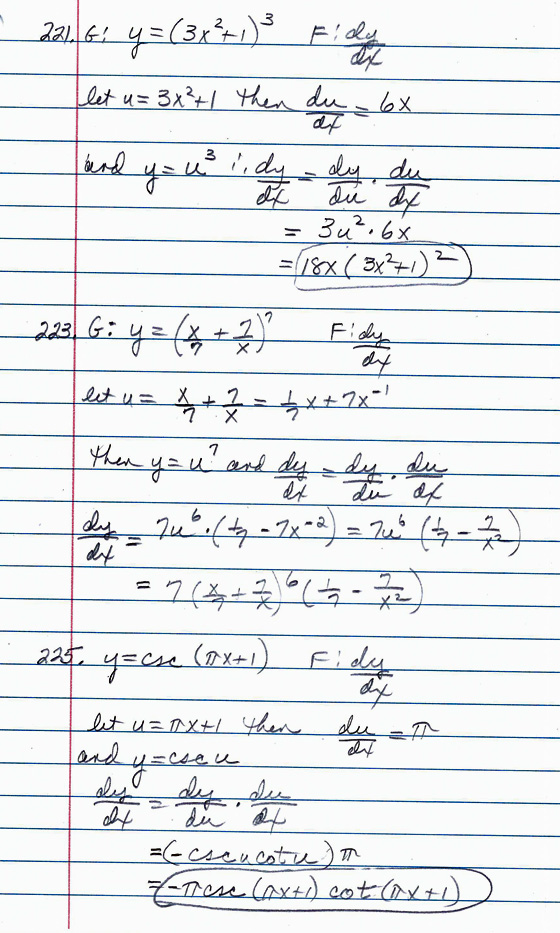 221. G: y = (3x²+1)³ F: dy/dx
let u = 3x²+1 then du/dx = 6x
and y = u³ ∴ dy/dx = dy/du · du/dx
= 3u² · 6x
= 18x(3x²+1)²
223. G: y = (x/7 + 7/x)⁷ F: dy/dx
let u = x/7 + 7/x = 1/7 x + 7x⁻¹
then y = u⁷ and dy/dx = dy/du · du/dx
dy/dx = 7u⁶ · (1/7 - 7x⁻²) = 7u⁶ (1/7 - 7/x²)
= 7 (x/7 + 7/x)⁶ (1/7 - 7/x²)
225. y = csc (πx+1) F: dy/dx
let u = πx+1 then du/dx = π
and y = csc u
dy/dx = dy/du · du/dx
= (-csc u cot u) π
= -π csc (πx+1) cot (πx+1)